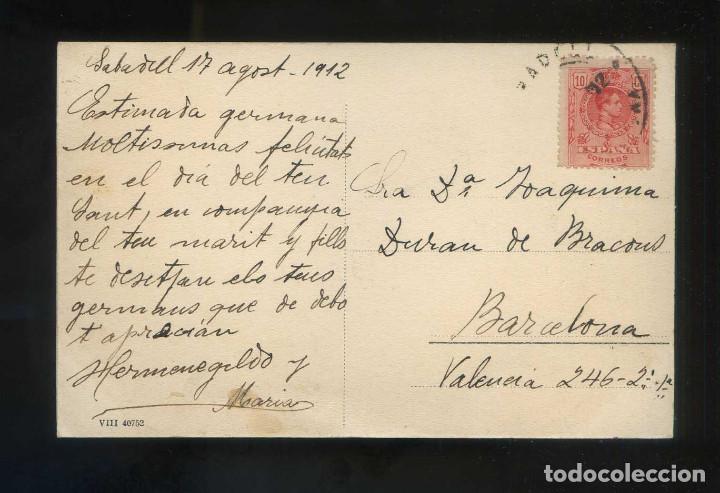 Sabadell 17 agost - 1912
Estimada germana
Moltissimas felicitats
en el dia del teu
Sant, en companyia
del teu marit y fills
te desetjan els teus
germans que de debo
t aprecian
Hermenegildo y
Maria
VIII 40752
10 10
ESPAÑA
CORREOS
Sra Dª Joaquima
Duran de Bracons
Barcelona
Valencia 246-2º 1ª
todocoleccion